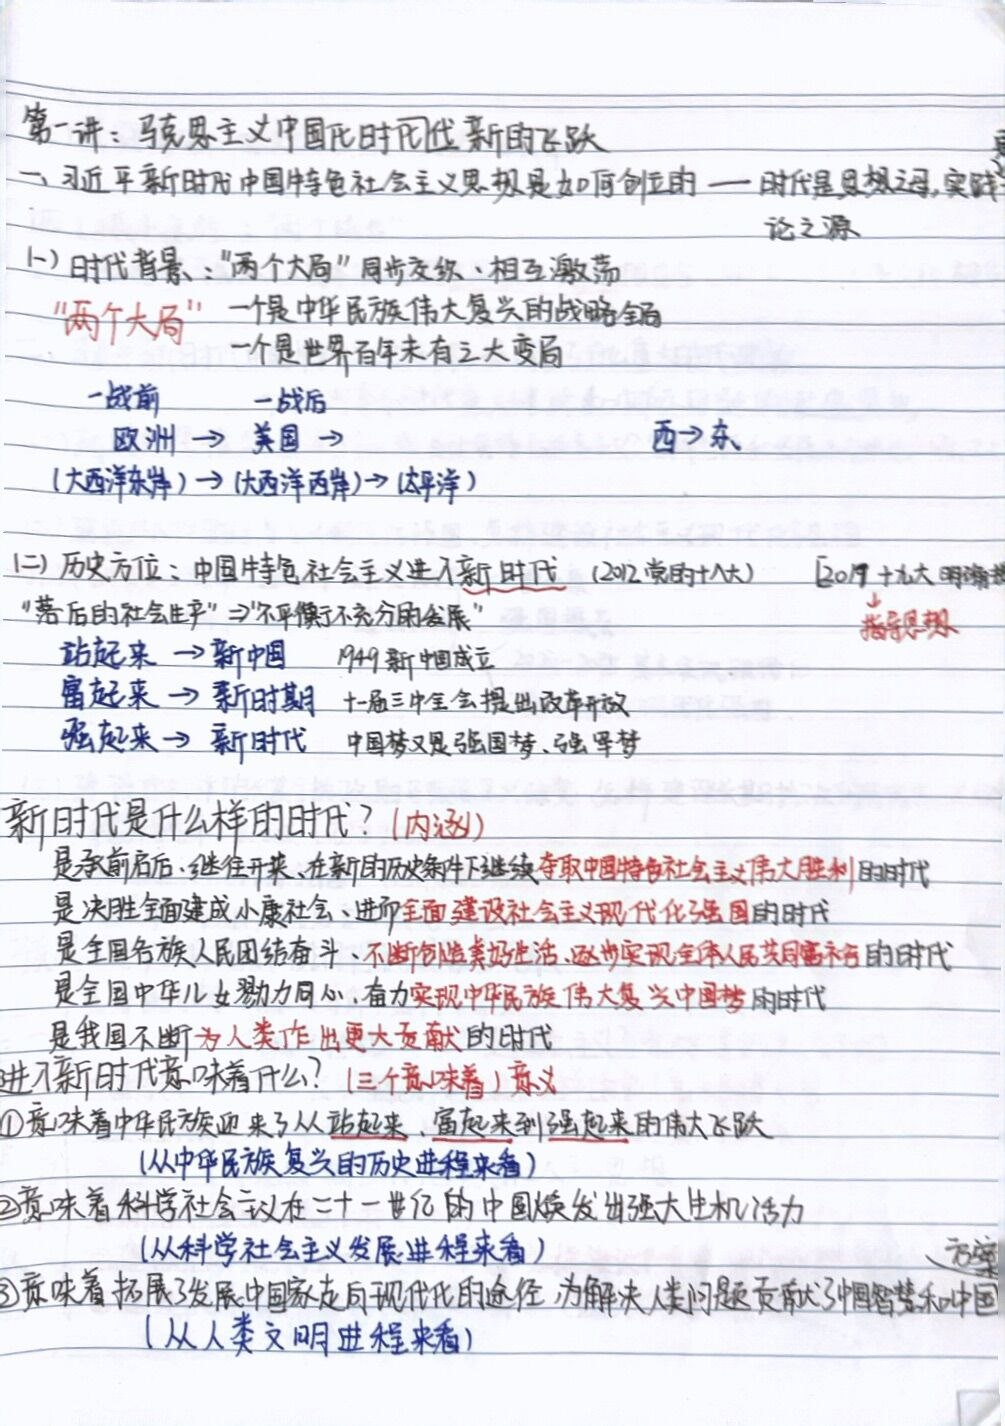 第一讲：马克思主义中国化时代化新的飞跃
一、习近平新时代中国特色社会主义思想是如何创立的——时代是思想之母，实践
论之源
(一) 时代背景：“两个大局”同步交织、相互激荡
“两个大局” 一个是中华民族伟大复兴的战略全局
一个是世界百年未有之大变局
一战前 一战后
欧洲 → 美国 → 西→东
(大西洋东岸) → (大西洋西岸) → (太平洋)
(二) 历史方位：中国特色社会主义进入新时代 (2012党的十八大) [2017 十九大 明确
“落后的社会生产” ⇒ “不平衡不充分的发展” ↓
指导思想
站起来 → 新中国 1949新中国成立
富起来 → 新时期 十一届三中全会提出改革开放
强起来 → 新时代 中国梦又是强国梦、强军梦
新时代是什么样的时代？(内涵)
是承前启后、继往开来、在新的历史条件下继续夺取中国特色社会主义伟大胜利的时代
是决胜全面建成小康社会、进而全面建设社会主义现代化强国的时代
是全国各族人民团结奋斗、不断创造美好生活、逐步实现全体人民共同富裕的时代
是全国中华儿女勠力同心、奋力实现中华民族伟大复兴中国梦的时代
是我国不断为人类作出更大贡献的时代
进入新时代意味着什么？(三个意味着) 意义
①意味着中华民族迎来了从站起来、富起来到强起来的伟大飞跃
(从中华民族复兴的历史进程来看)
②意味着科学社会主义在二十一世纪的中国焕发出强大生机活力
(从科学社会主义发展进程来看)
方案
③意味着拓展了发展中国家走向现代化的途径，为解决人类问题贡献了中国智慧和中国
(从人类文明进程来看)